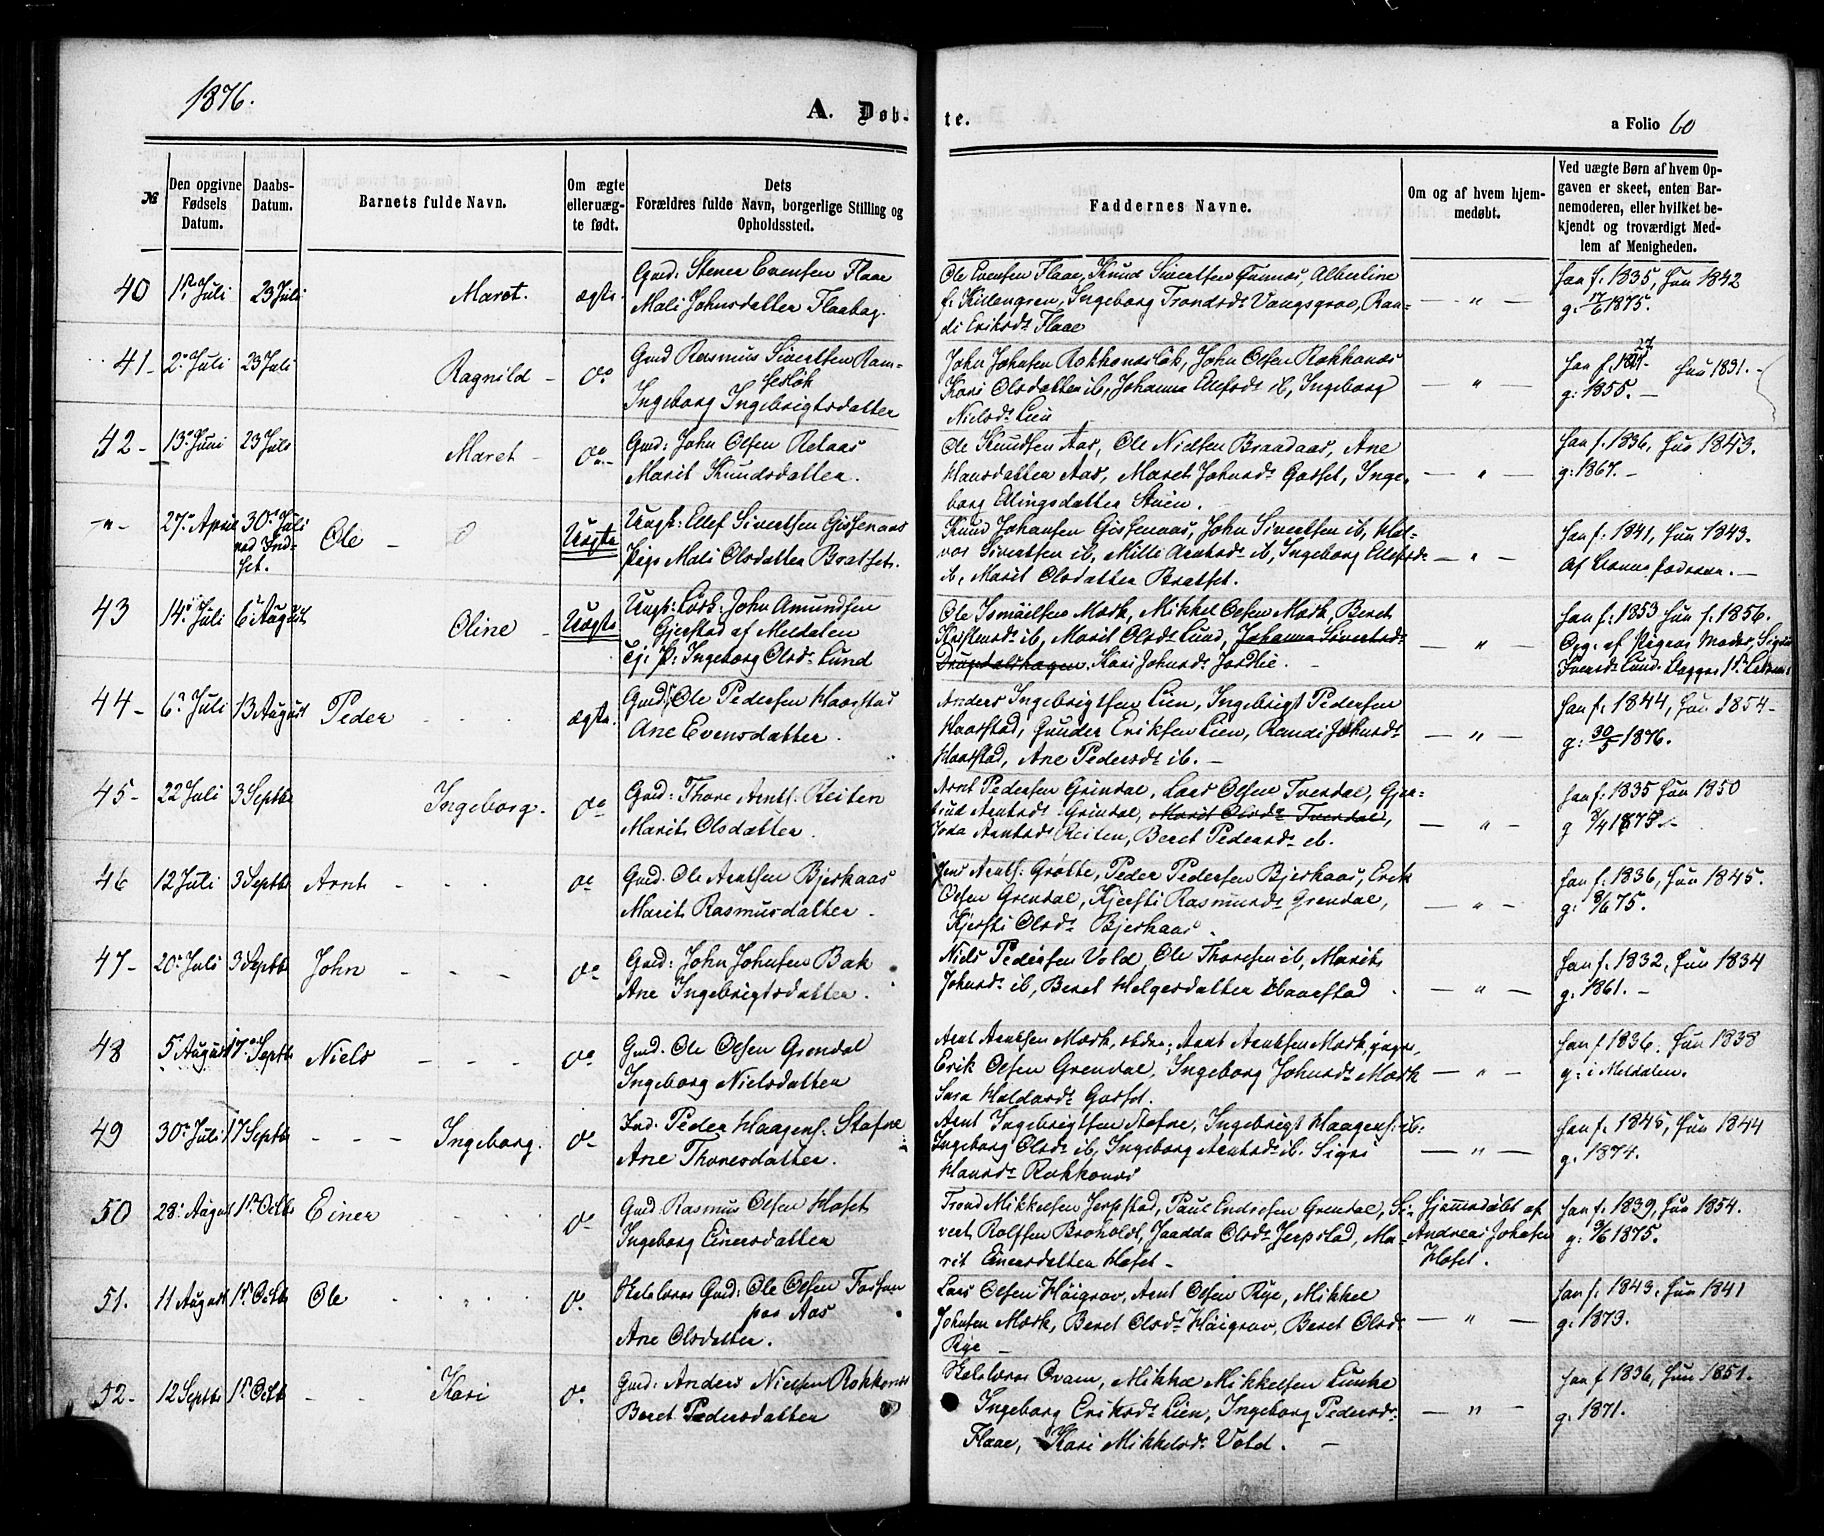 1876.
A. Døb-
te.
a Folio 60
№
Den opgivne Fødsels Datum.
Daabs-Datum.
Barnets fulde Navn.
Om ægte eller uægte født.
Dets Forældres fulde Navn, borgerlige Stilling og Opholdssted.
Faddernes Navne.
Om og af hvem hjemmedøbt.
Ved uægte Børn af hvem Opgaven er skeet, enten Barnemoderen, eller hvilket bekjendt og troværdigt Medlem af Menigheden.
40 1ste Juli 23 Juli Maret. ægte.
Gmd: Stener Evensen Flaae
Mali Johnsdatter Flaahag.
Ole Evensen Flaae, Knud Sivertsen, Albertine
f. Killengren, Ingeborg Trondsdr Vangsgrav, Ran-
di Eriksdr Flaae
han f. 1835, hun 1842
g: 17/6 1875.
41- 2. Juli 23 Juli Ragnild - do
Gmd Rasmus Sivertsen Ram-
Ingeborg Ingebrigtsdatter
John Johnsen Rokkonesløk, John Olsen Rokkones
Kari Olsdatter ib, Johanna Ellefsdr ib, Ingeborg
Nielsdr Lien
han f. 27 hun 1831.-
g: 1855.-
42- 13. Juni 23 Juli Maret - do
Gmd: John Olsen Retaas
Marit Knudsdatter.
Ole Knudsen Aas, Ole Nielsen Braadaas, Ane
Hansdatter Aas, Maret Johnsdr Gorset, Inge-
borg Ellingsdatter Stuen.
han f. 1836, hun 1843.
g: 1867.-
-"- 27. April 30. Juli
ved Ind-
set.
Ole - Uægte
Ungk: Ellef Sivertsen Gissenaas
Pige Mali Olsdatter Bratset.
Knud Johansen Gissenaas, John Sivertsen ib, Hal-
vor Sivertsen ib, Milli Arntsdr ib, Ingeborg Ellefsdr
ib, Marit Olsdatter Bratset.
han f. 1841, hun 1843.
Af Barnefaderen.-
43 14. Juli 6 August Oline - Uægte
Ungk: Losk: John Amundsen
Gjerstad af Meldalen
P: Ingeborg Olsdr Lund
Ole Ismaelsen Mærk, Mikkel Olsen Mærk, Beret
Kristensdr ib, Marit Olsdr Lund, Johanna Sivertsdr
Drugudalshagen. Kari Johnsdr Jordlie.-
han f. 1853 hun f. 1856.
Opg. af Pigens Moder, Sigrid
Iversdr Lund.
44- 6. Juli 13 August Peder ægte.
Gmd: Ole Pedersen Haarstad
Ane Evensdatter.
Anders Ingebrigtsen Lien, Ingebrigt Pedersen
Haarstad, Gunder Eriksen Lien, Randi Johnsdr
Haarstad, Ane Pedersdr ib.-
han f. 1844, hun 1854-
g: 30/5 1876.
45- 22 Juli 3 Septbr Ingeborg. do
Gmd: Thore Arnts. Reiten
Marit Olsdatter.
Arnt Pedersen Grindal, Lars Olsen Tverdal, Gjer-
trud Arntsdr Grindal, Marit Olsdr Tverdal,
Arntsdr Reiten, Beret Pedersdr ib.
han f. 1835 hun 1850
g /4 1875.-
46 12 Juli 3 Septbr Arnt do
Gmd. Ole Arntsen Bjerkaas
Marit Rasmusdatter.
Jens Arnts. Grøtte, Peder Pedersen Bjerkaas, Erik
Olsen Grendal, Kjersti Rasmusdr Grendal,
Kjersti Olsdr Bjerkaas.
han f. 1836, hun 1845.
g: /6 75.
47- 20. Juli 3 Septbr John do
Gmd: John Johnsen Bak
Ane Ingebrigtsdatter.
Niels Pedersen Vold Ole Thoresen ib, Marit
Johnsdr ib, Beret Helgesdatter Haarstad
han f. 1832, hun 1834
g: 1861.-
48 5 August 17de Septbr Niels do
Gmd. Ole Olsen Grendal
Ingeborg Nielsdatter
Arnt Arntsen Mærk, eldre; Arnt Arntsen Mærk yngre,
Erik Olsen Grendal, Ingeborg Johnsdr Mærk
Sara Haldorsdr Gorset.
han f. 1836. hun 1838
g: i Meldalen.
49 30. Juli 17 Septbr Ingeborg. do
Ind. Peder Haagens. Stofne
Ane Thoresdatter.
Arnt Ingebrigtsen Stofne, Ingebrigt Haagens. ib.
Ingeborg Olsdr ib, Ingeborg Arntsdr ib. Sigri
Hansdr Rokkones
han f. 1845, hun 1844
g. 1874.
50 28. August 1ste Octbr Einer do
Gmd. Rasmus Olsen Hoset
Ingeborg Einersdatter
Trond Mikkelsen Jerpstad, Paul Endresen Grendal, Si-
vert Rolfsen Broholdt, Jaadda Olsdr Jerpstad, Ma-
rit Einersdatter Hoset -
Hjemmedøbt af
Andreas Johnsen
Hoset.
han f. 1839, hun 1854.
g: /6 1875.
51. 11 August 1ste Octbr Ole do
Skolelærer Gmd: Ole Olsen
paa Aas
Ane Olsdatter.
Lars Olsen Høigrav, Arnt Olsen Rye, Mikkel
Johnsen Mærk, Beret Olsdr Høigrav, Beret Olsdr
Rye -
han f. 1843, hun 1841
g: 1873.
52- 12 Septbr 1ste Octb Kari do
Gmd: Anders Nielsen Rokkones
Beret Pedersdatter
Skolelærer Qvam, Mikkel Mikkelsen Lunke
Ingeborg Eriksdr Lien, Ingeborg Pedersdr
Flaae, Kari Mikkelsdr Vold. -
han f 1836, hun 1851.
g: 1871.